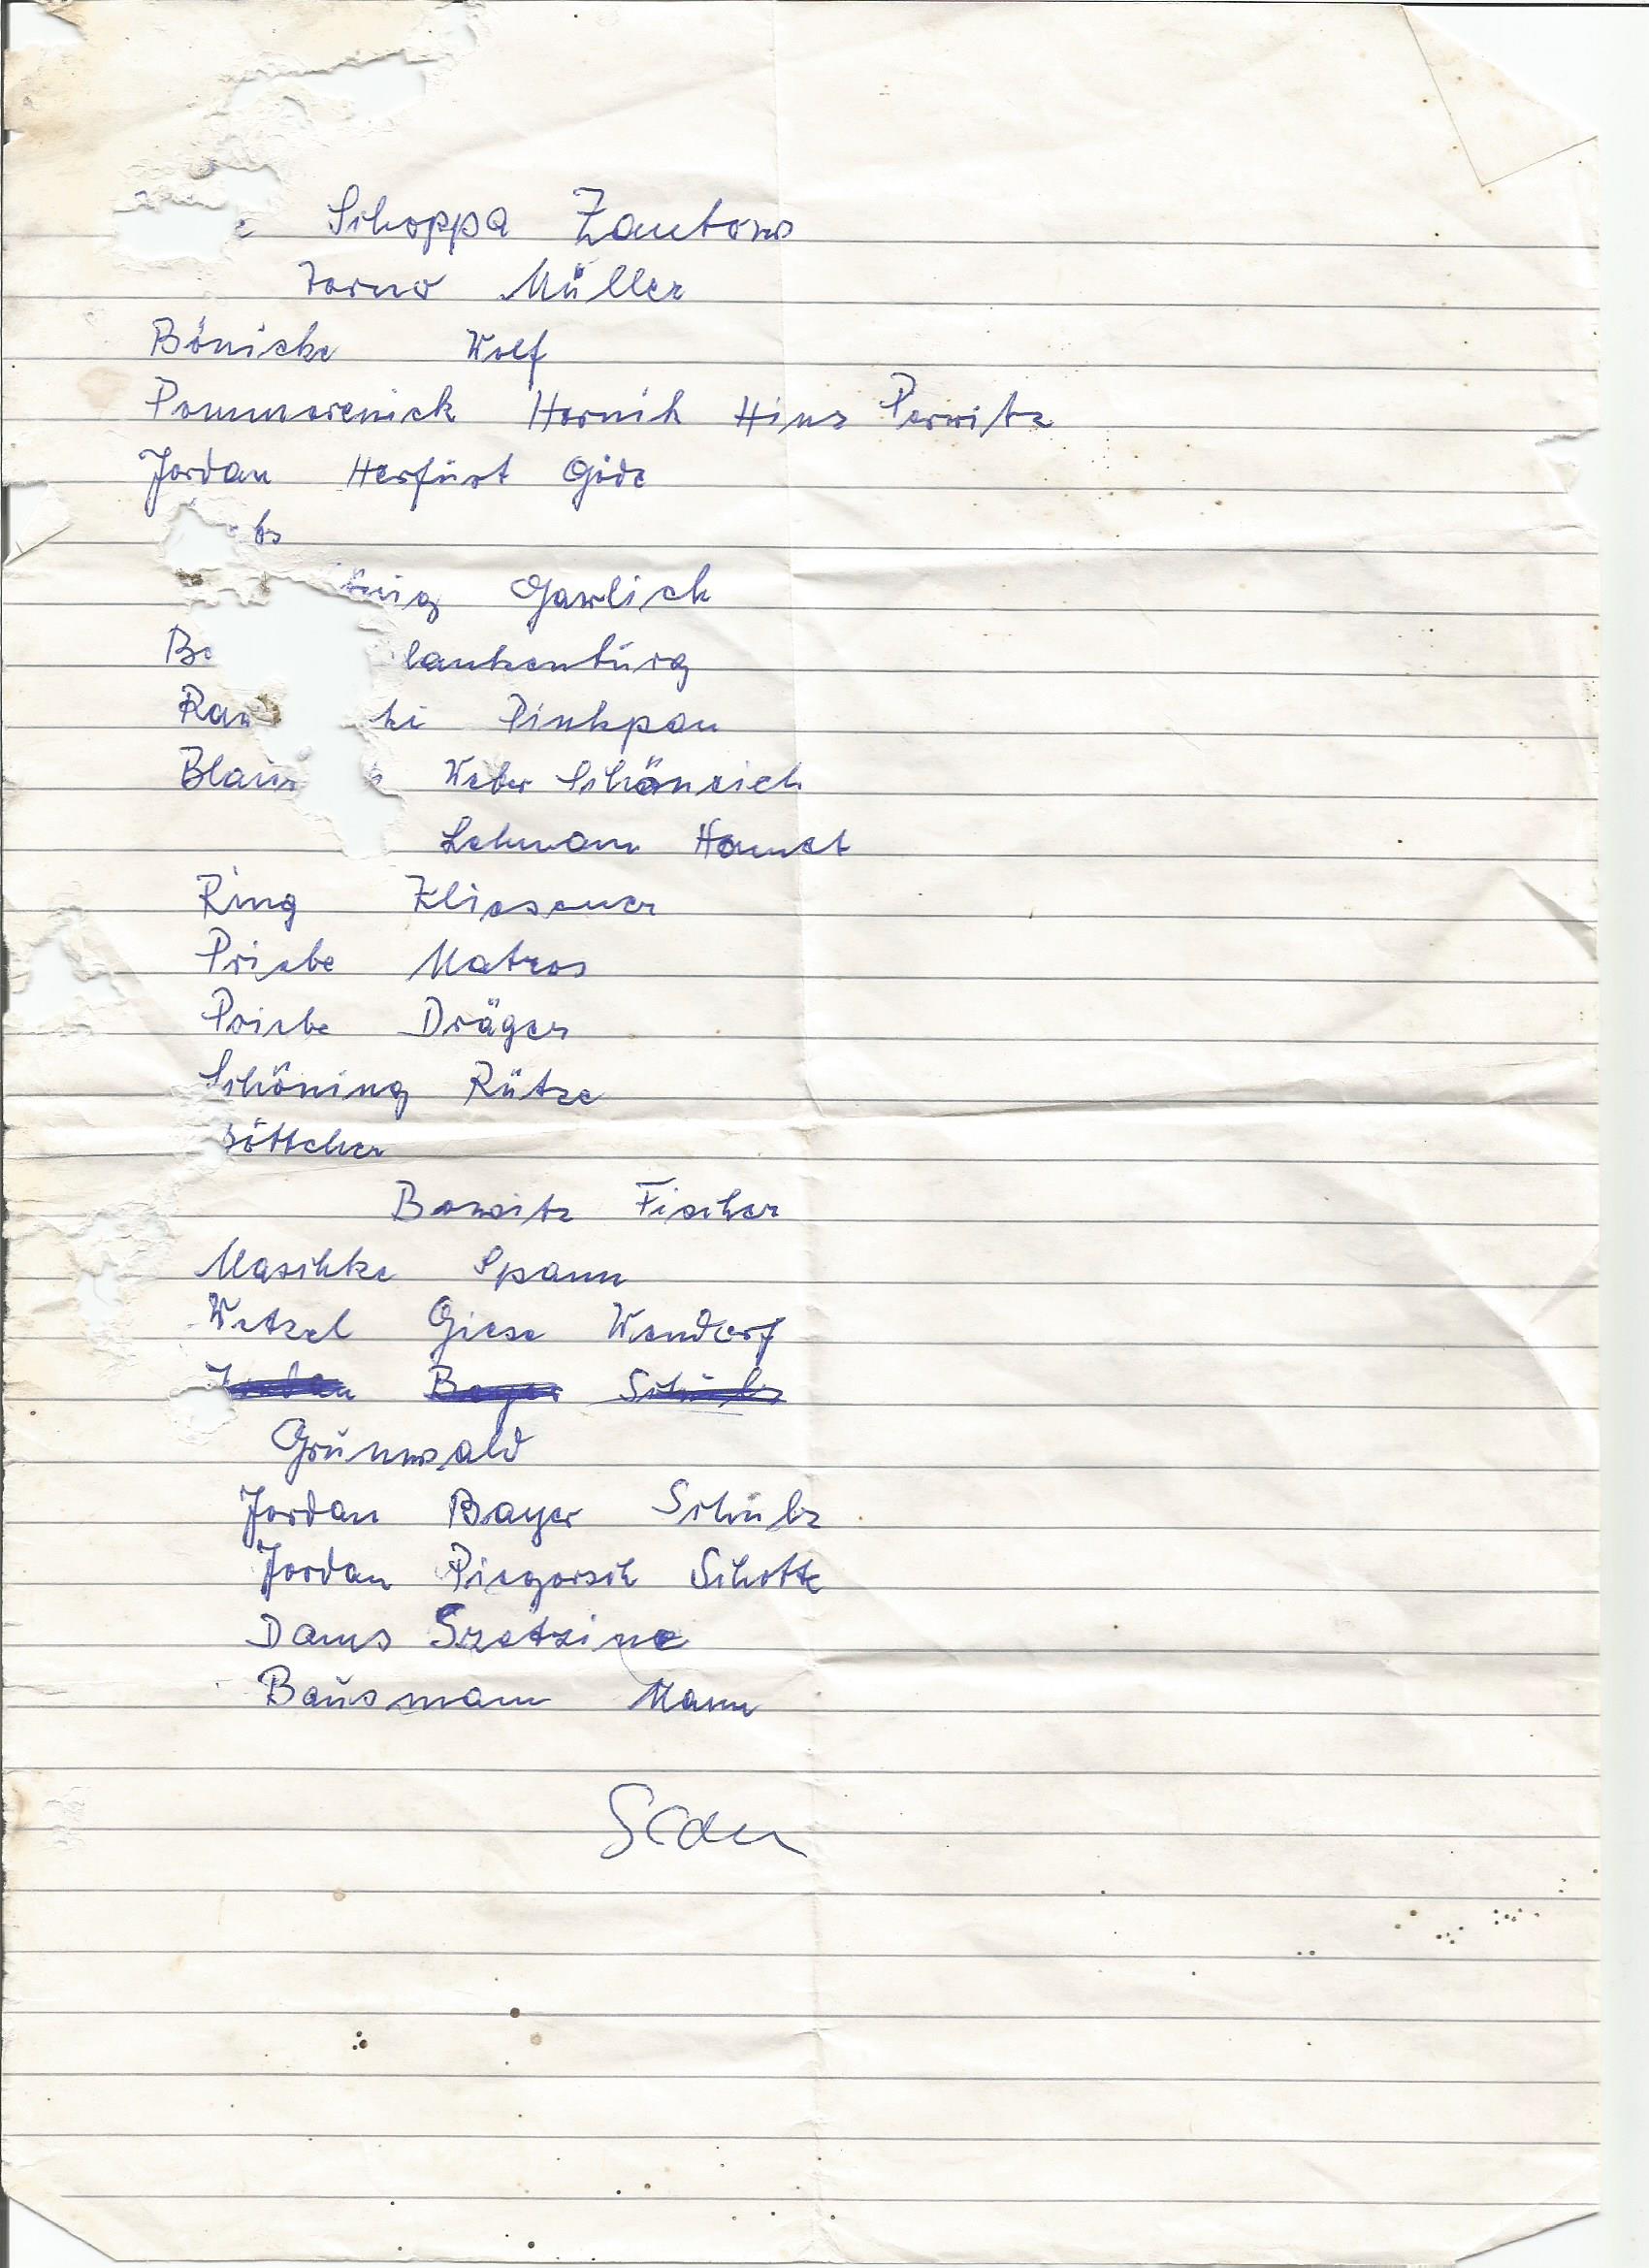 Schoppa Zantow
Torno Müller
Bönicke Wolf
Pommerenick Hornik Hinz Perwitz
Jordan Herfürt Göde
Gawlick
Be lankenburg
Ran ki Pinkpan
Blau Weber Schönrich
Lehmann Hamet
Ring Kliesener
Priebe Matros
Priebe Dräger
Schöning Rütze
öttcher
Bowitz Fischer
Maschke Spann
Wetzel Giese Wendorf
Grünwald
Jordan Bayer Schulz
Jordan Piegorsch Schotte
Dams
Bausmann Mann